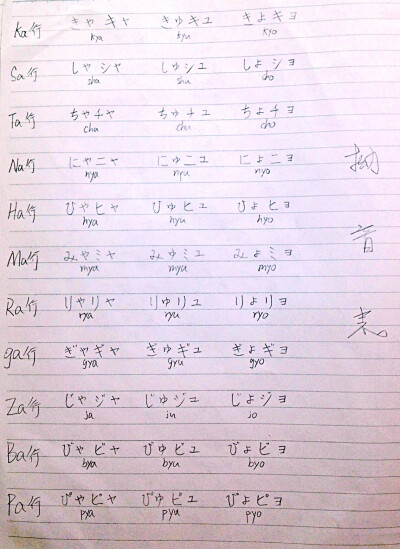 Ka行 きゃ キャ きゅ キュ きょ キョ
kya kyu kyo
Sa行 しゃ シャ しゅ シュ しょ ショ
sha shu sho
Ta行 ちゃ チャ ちゅ チュ ちょ チョ
cha chu cho
Na行 にゃ ニャ にゅ ニュ にょ ニョ
nya nyu nyo
Ha行 ひゃ ヒャ ひゅ ヒュ ひょ ヒョ
hya hyu hyo
Ma行 みゃ ミャ みゅ ミュ みょ ミョ
mya myu myo
Ra行 りゃ リャ りゅ リュ りょ リョ
rya ryu ryo
ga行 ぎゃ ギャ ぎゅ ギュ ぎょ ギョ
gya gyu gyo
Za行 じゃ ジャ じゅ ジュ じょ ジョ
ja ju jo
Ba行 びゃ ビャ びゅ ビュ びょ ビョ
bya byu byo
Pa行 ぴゃ ピャ ぴゅ ピュ ぴょ ピョ
pya pyu pyo
拗音表